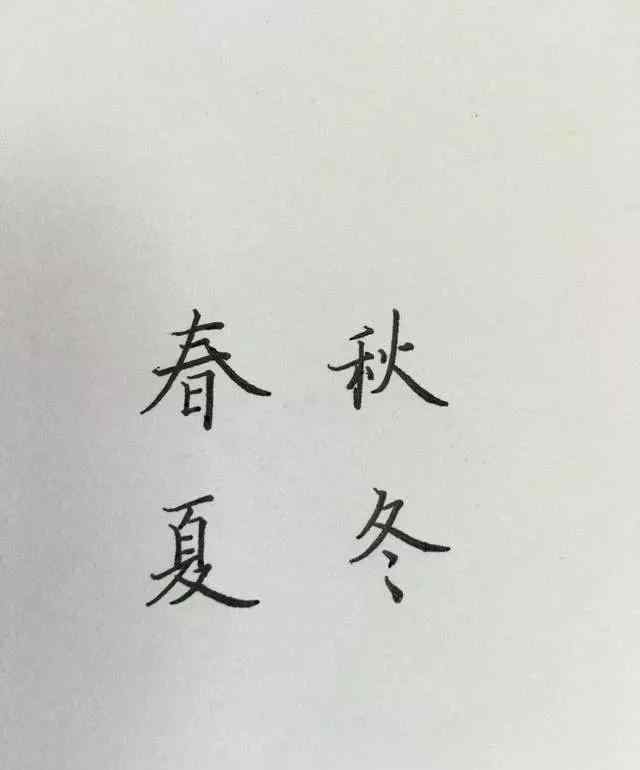 春 秋
夏 冬